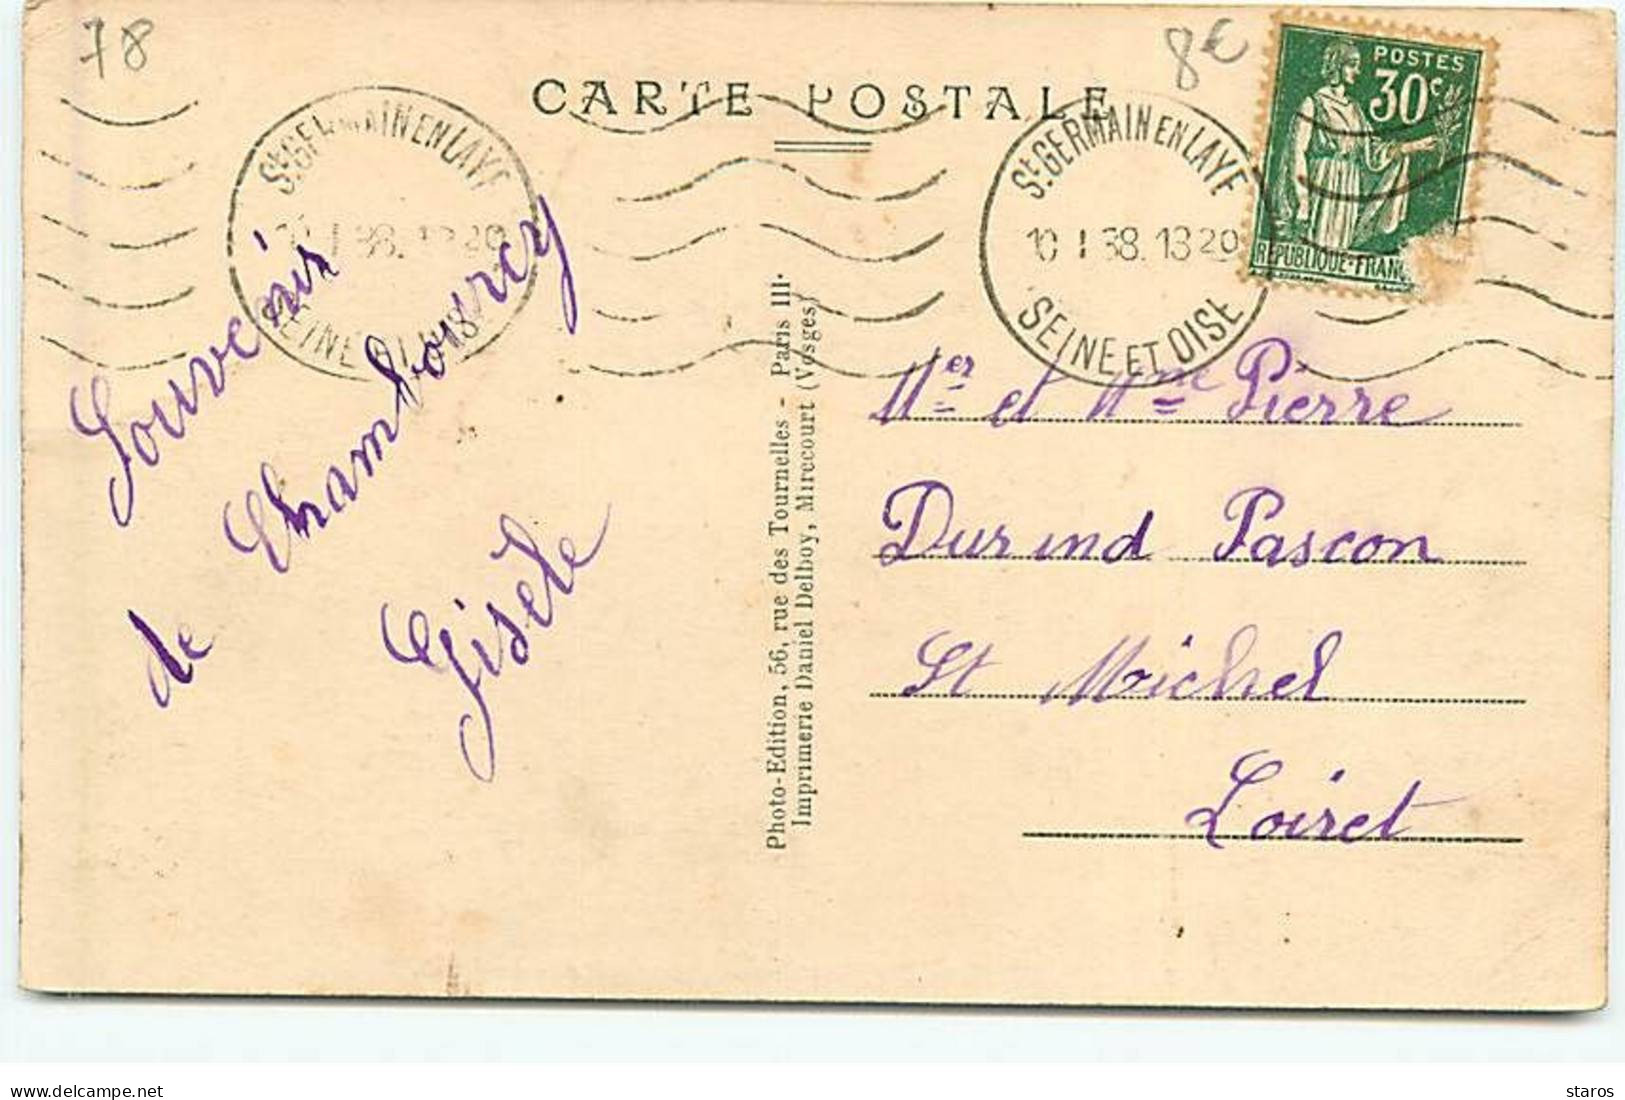 78
8€
CARTE POSTALE
POSTES
30c
REPUBLIQUE-FRANC
St GERMAIN EN LAYE
10 I 38. 13 20
SEINE ET OISE
St GERMAIN EN LAYE
10 I 38. 13 20
SEINE
Souvenir
de Chambourcy
Gisèle
Photo-Edition, 56, rue des Tournelles - Paris III.
Imprimerie Daniel Delboy, Mirecourt (Vosges)
Mer et Mme Pierre
Durand Pascon
St Michel
Loiret
delcampe.net
staros